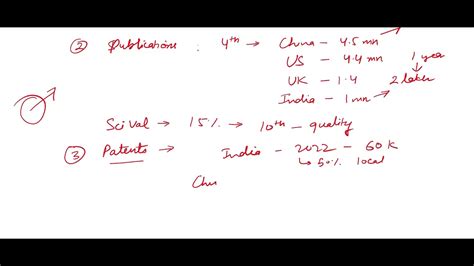 ② Publications : 4th → China - 4.5 mn
US - 4.4 mn 1 year
UK - 1.4 2 lakh
India - 1 mn
SciVal → 15% → 10th - quality
③ Patents → India - 2022 - 60K
↳ 50% local
Chi